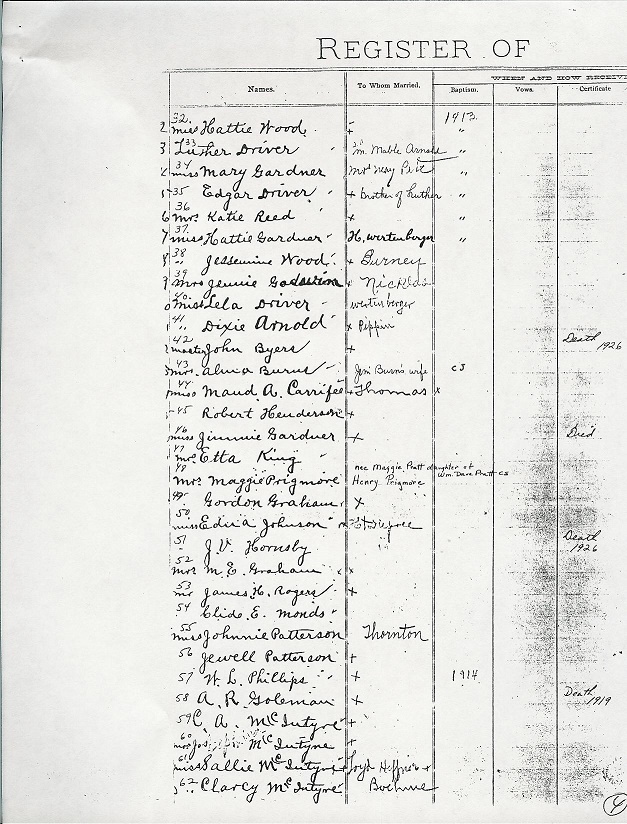 REGISTER OF
WHEN AND HOW RECEIV
Names. To Whom Married. Baptism. Vows. Certificate
2 32. miss Hattie Wood + 1913.
3 33 Luther Driver m. Mable Arnold "
4 34 miss Mary Gardner "
5 35 Edgar Driver + Brother of Luther "
6 36 mrs Katie Reed + "
7 37. miss Hattie Gardner H. wertenberger "
8 38 " Jessemine Wood + Gurney
9 39 mrs Jennie + Nicklas
0 40 miss Lela Driver wertenberger
1 41 " Dixie Arnold x Pippin
2 42 master John Byers + Death 1926
43 mrs. Alma Burns Jim Burns wife CS
44 miss Maud A. + Thomas x
45 Robert Henderson +
46 miss Jimmie Gardner + Died
47 mrs Etta King
48 mrs Maggie Prigmore nee Maggie Pratt daughter of Wm. Dave Pratt CS
Henry Prigmore
49 Gordon Graham x
50 miss Edna Johnson x
51 J. V. Hornsby Death 1926
52 mrs M. E. Graham x
53 mr James H. Rogers +
54 Clide E. Monds
55 miss Johnnie Patterson Thornton
56 Jewell Patterson +
57 W. L. Phillips + 1914.
58 A. R. Goleman + Death 1919
59 C. A. McIntyre +
60 mrs McIntyre +
61 miss Sallie McIntyre +
62 " Clarcy McIntyre Boehme
4